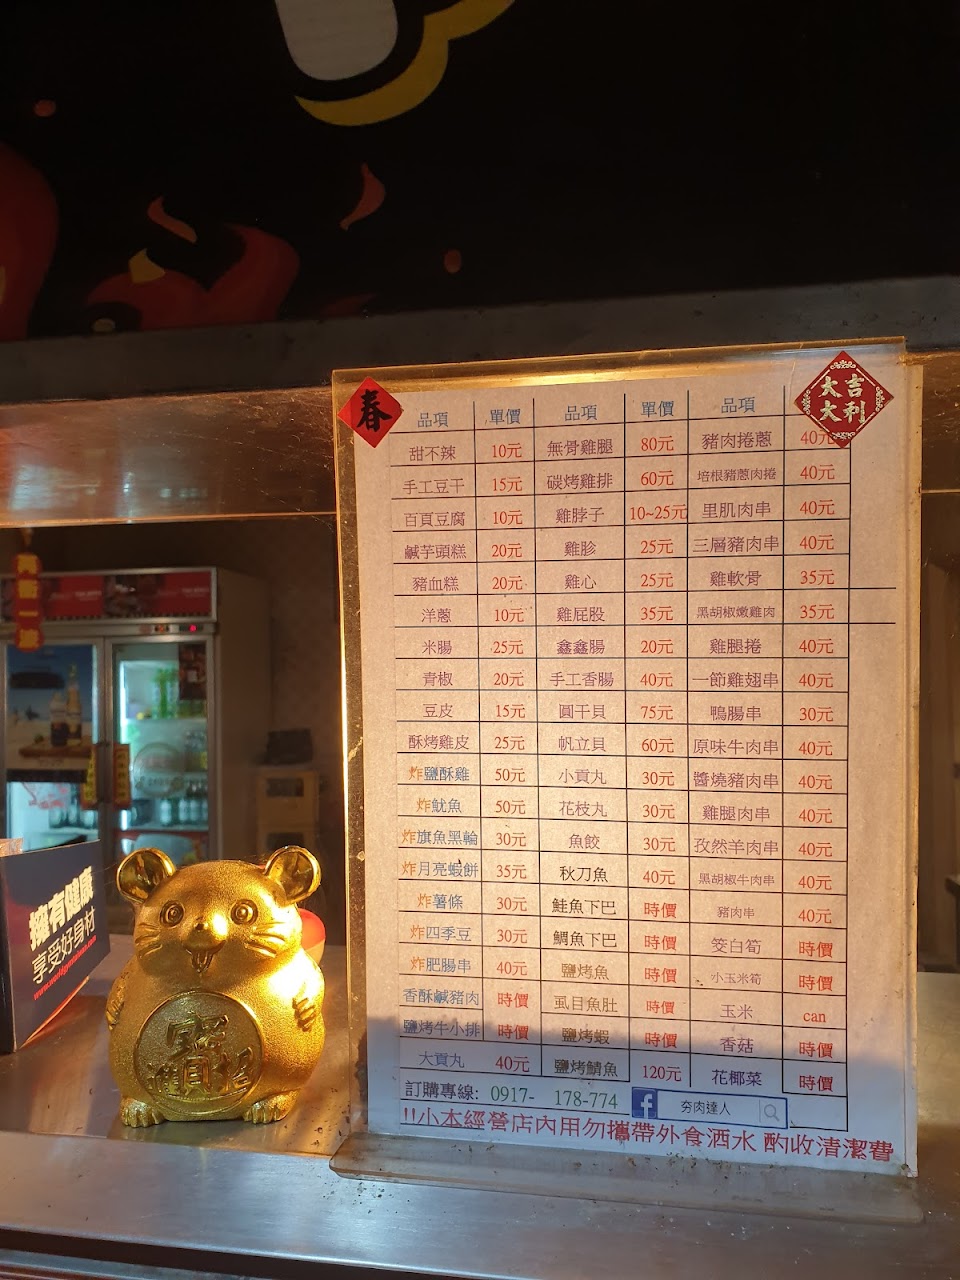 春
大吉
大利
品項 單價 品項 單價 品項
甜不辣 10元 無骨雞腿 80元 豬肉捲蔥 40元
手工豆干 15元 碳烤雞排 60元 培根豬蔥肉捲 40元
百頁豆腐 10元 雞脖子 10~25元 里肌肉串 40元
鹹芋頭糕 20元 雞胗 25元 三層豬肉串 40元
豬血糕 20元 雞心 25元 雞軟骨 35元
洋蔥 10元 雞屁股 35元 黑胡椒嫩雞肉 35元
米腸 25元 鑫鑫腸 20元 雞腿捲 40元
青椒 20元 手工香腸 40元 一節雞翅串 40元
豆皮 15元 圓干貝 75元 鴨腸串 30元
酥烤雞皮 25元 帆立貝 60元 原味牛肉串 40元
炸鹽酥雞 50元 小貢丸 30元 醬燒豬肉串 40元
炸魷魚 50元 花枝丸 30元 雞腿肉串 40元
炸旗魚黑輪 30元 魚餃 30元 孜然羊肉串 40元
炸月亮蝦餅 35元 秋刀魚 40元 黑胡椒牛肉串 40元
炸薯條 30元 鮭魚下巴 時價 豬肉串 40元
炸四季豆 30元 鯛魚下巴 時價 筊白筍 時價
炸肥腸串 40元 鹽烤魚 時價 小玉米筍 時價
香酥鹹豬肉 時價 虱目魚肚 時價 玉米 can
鹽烤牛小排 時價 鹽烤蝦 時價 香菇 時價
大貢丸 40元 鹽烤鯖魚 120元 花椰菜 時價
訂購專線: 0917- 178-774 f 夯肉達人
!!小本經營店內用勿攜帶外食酒水 酌收清潔費
擁有健康
享受好身材